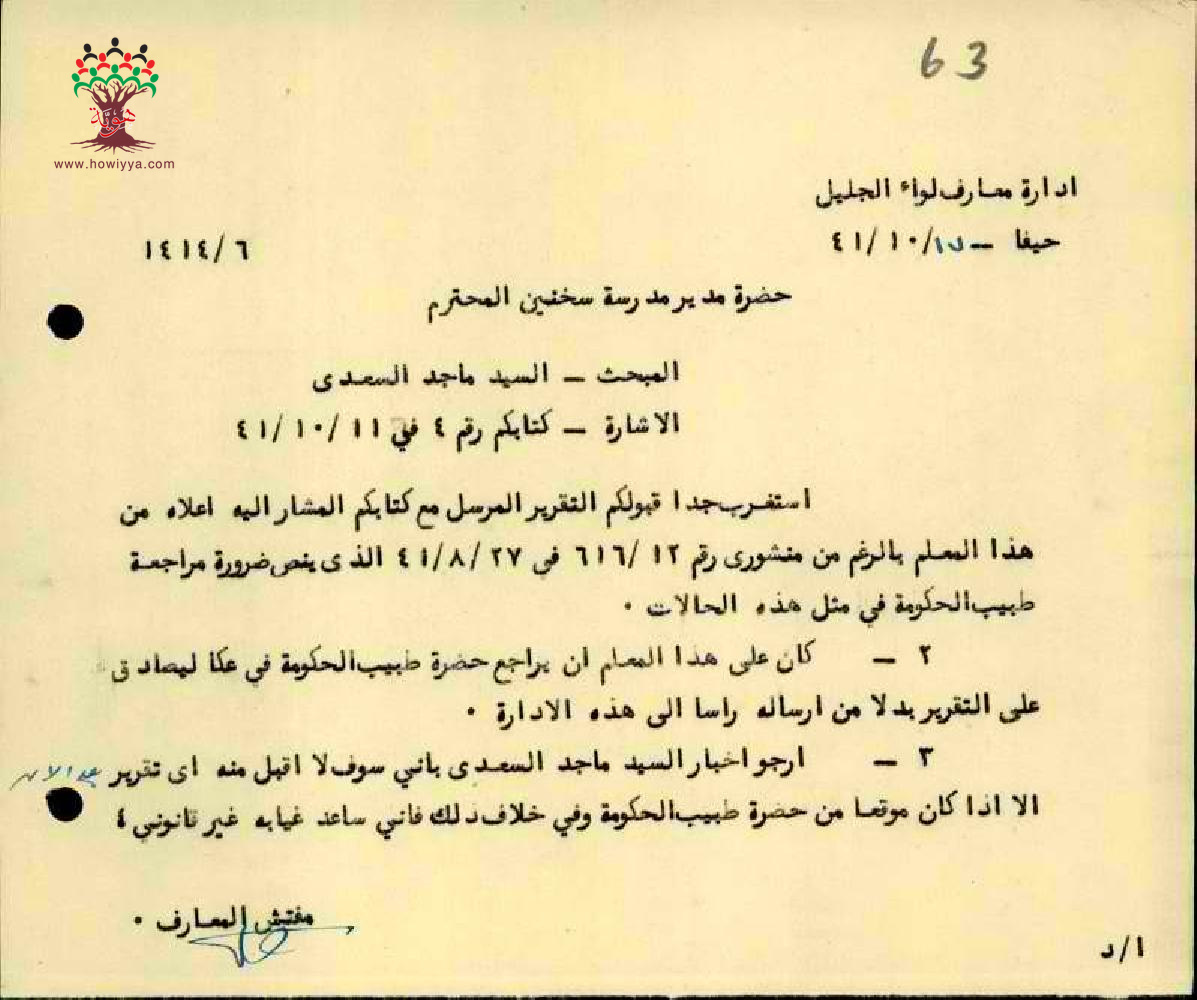 63
هوية
www.howiyya.com
ادارة معارف لواء الجليل
حيفا — ١٥/ ١٠/ ٤١
١٤١٤/ ٦
حضرة مدير مدرسة سخنين المحترم
المبحث — السيد ماجد السعدى
الاشارة — كتابكم رقم ٤ في ١١ /١٠ /٤١
استغرب جدا قبولكم التقرير المرسل مع كتابكم المشار اليه اعلاه من
هذا المعلم بالرغم من منشورى رقم ١٢ /٦١٦ فى ٢٧ /٨ /٤١ الذى ينص ضرورة مراجعة
طبيب الحكومة في مثل هذه الحالات ٠
٢ — كان على هذا المعلم ان يراجع حضرة طبيب الحكومة في عكا ليصادق
على التقرير بدلا من ارساله راسا الى هذه الادارة ٠
٣ — ارجو اخبار السيد ماجد السعدى باني سوف لا اقبل منه اى تقرير بعد الان
الا اذا كان موقعا من حضرة طبيب الحكومة وفي خلاف ذلك فاني ساعد غيابه غير قانوني ٤
مفتش المعارف ٠
ا/د